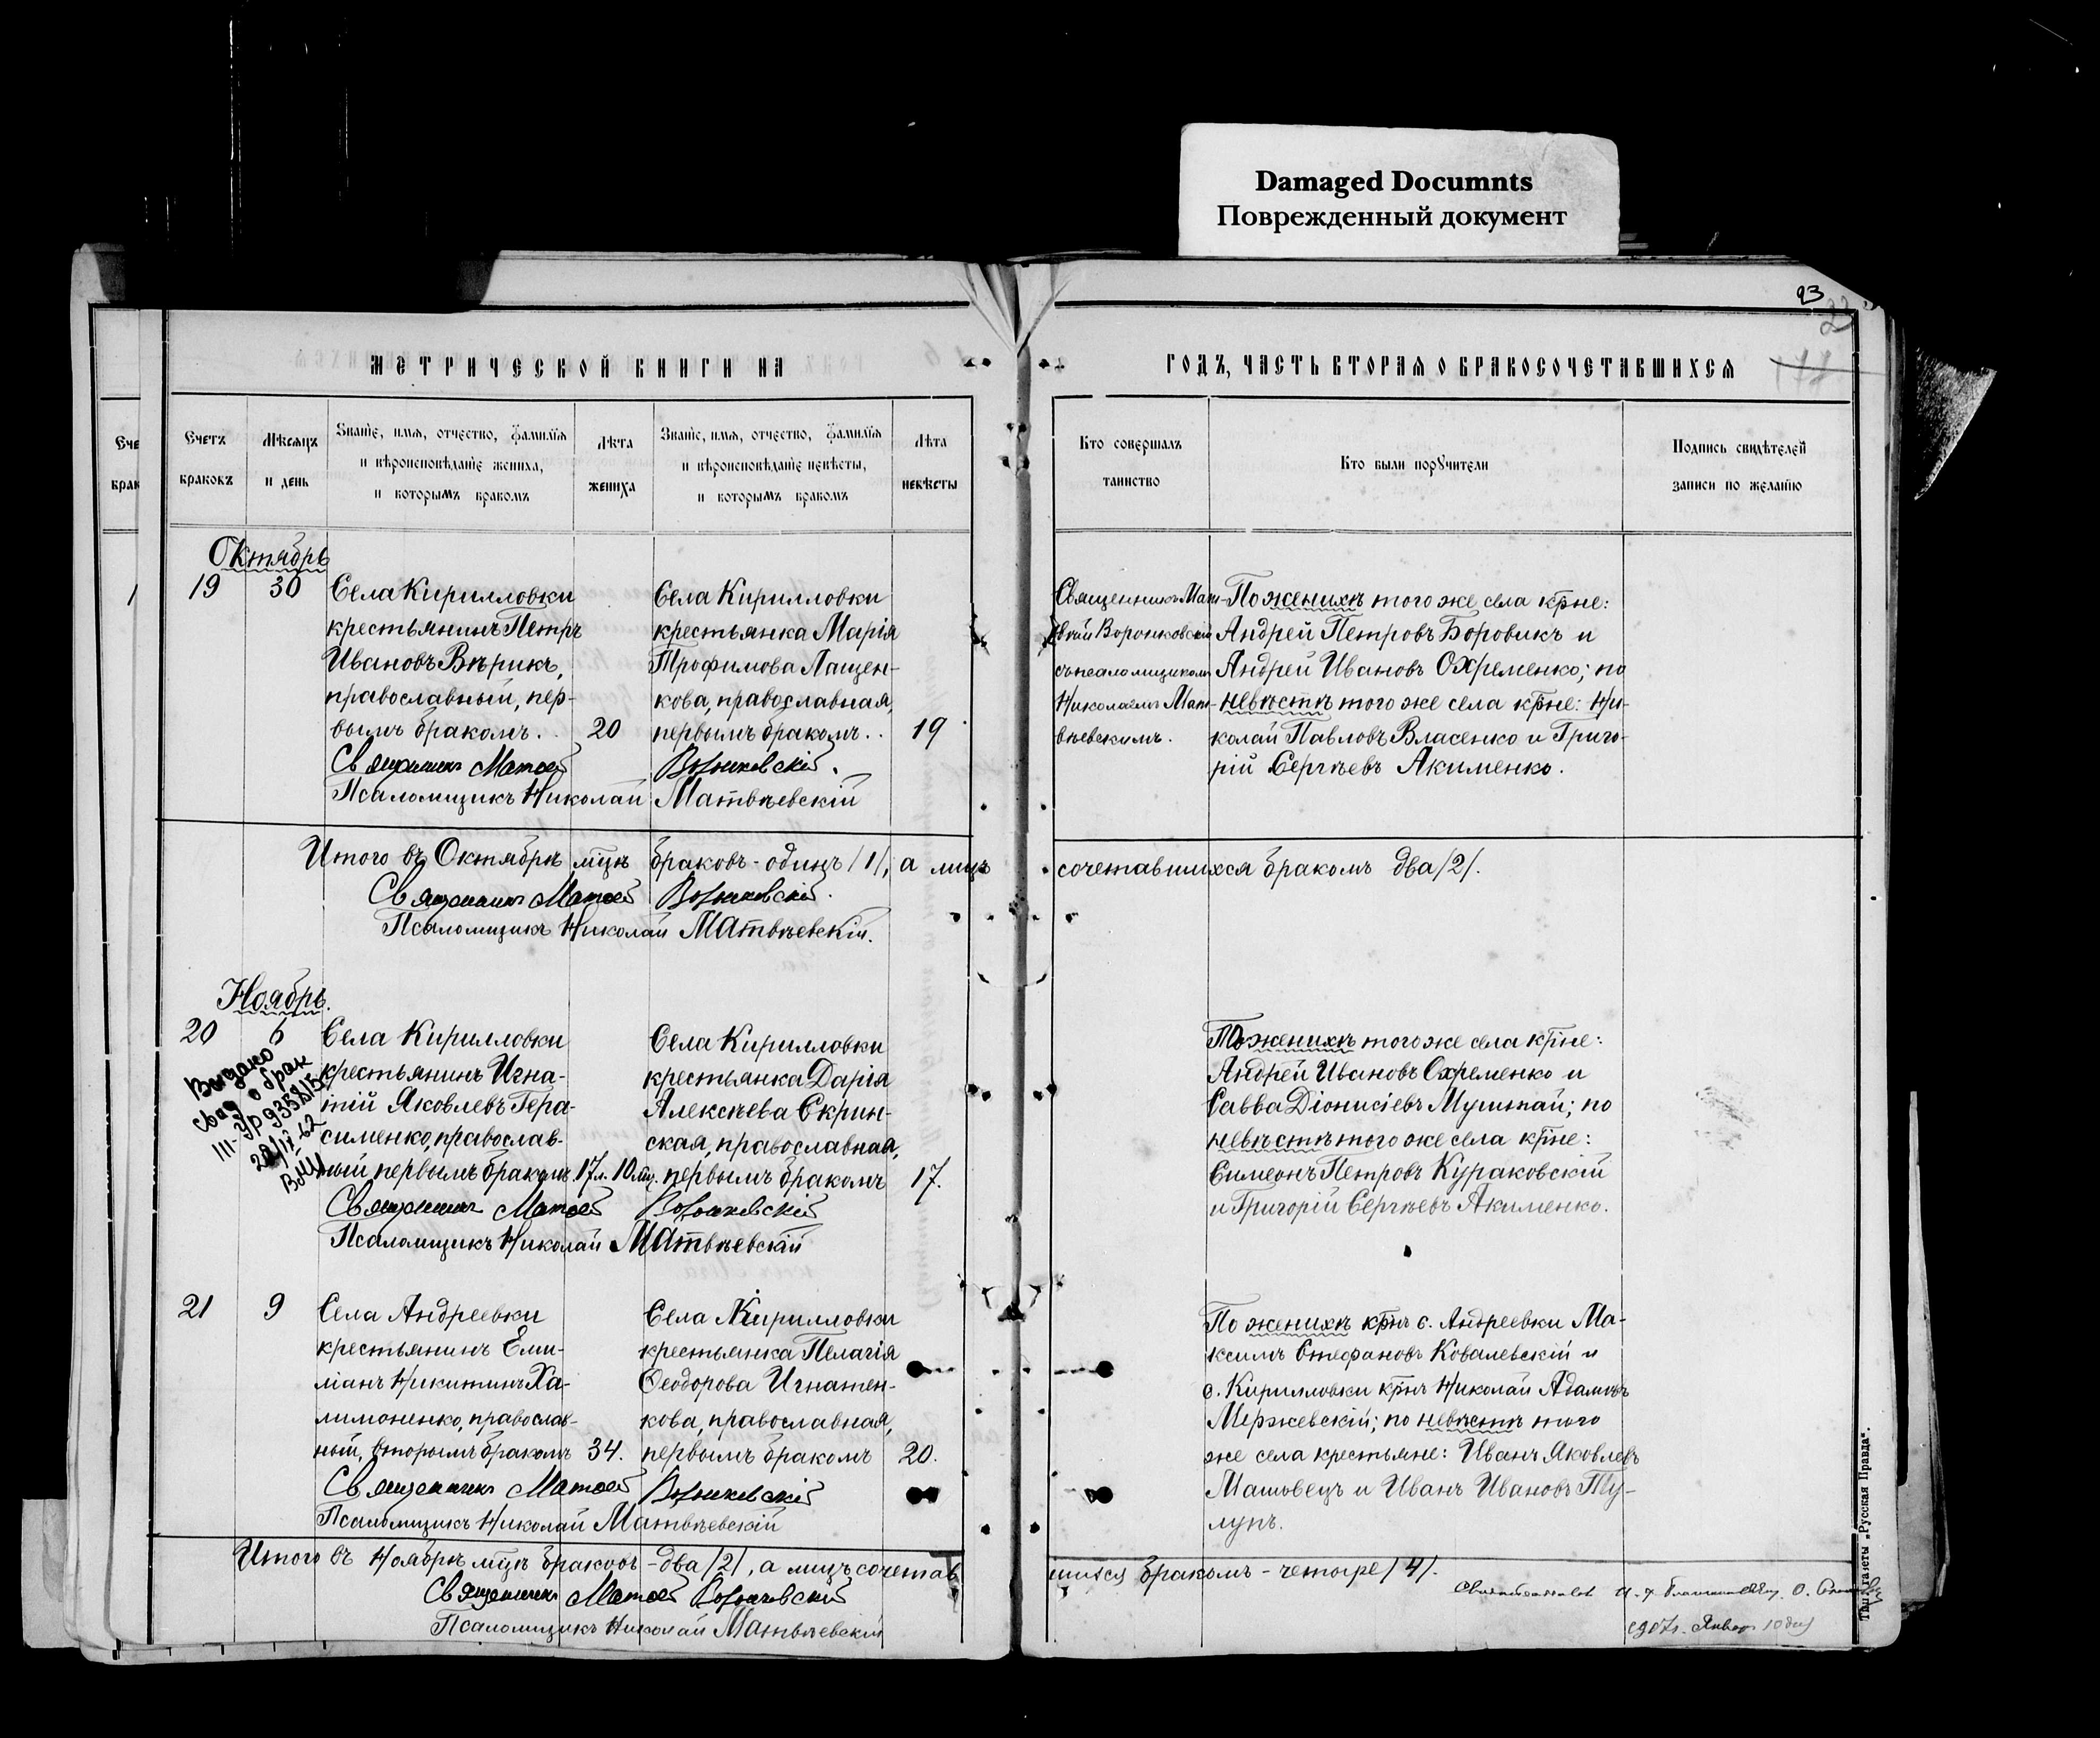 Damaged Documnts
Поврежденный документ
23
МЕТРИЧЕСКОЙ КНИГИ НА
ГОДЪ, ЧАСТЬ ВТОРАЯ О БРАКОСОЧЕТАВШИХСЯ
Счетъ браковъ
Мѣсяцъ и день
Званіе, имя, отчество, фамилія и вѣроисповѣданіе жениха, и которымъ бракомъ
Лѣта жениха
Званіе, имя, отчество, фамилія и вѣроисповѣданіе невѣсты, и которымъ бракомъ
Лѣта невѣсты
Кто совершалъ таинство
Кто были поручители
Подпись свидѣтелей записи по желанію
Октябрь
19
30
Села Кирилловки
крестьянинъ Петръ
Ивановъ Вѣрикъ,
православный, пер-
вымъ бракомъ.
20
Села Кирилловки
крестьянка Марія
Трофимова Лащен-
кова, православная,
первымъ бракомъ.
19
Священникъ Мат-
вѣй Воронковскій
съ псаломщикомъ
Николаемъ Мат-
вѣевскимъ.
По женихѣ того же села кр̃не:
Андрей Петровъ Боровикъ и
Андрей Ивановъ Охременко; по
невѣстѣ того же села кр̃не: Ни-
колай Павловъ Власенко и Григо-
рій Сергѣевъ Акименко.
Священникъ Матѳей Воронковскій.
Псаломщикъ Николай Матвѣевскій
Итого въ Октябрѣ мц̃ѣ браковъ - одинъ /1/, а лицъ сочетавшихся бракомъ два /2/.
Священникъ Матѳей Воронковскій.
Псаломщикъ Николай Матвѣевскій.
Ноябрь.
20
6
Выдано
свид о брак
22/IV-62
Села Кирилловки
крестьянинъ Игна-
тій Яковлевъ Гера-
сименко, православ-
ный первымъ бракомъ.
17 л. 10 мц.
Села Кирилловки
крестьянка Дарія
Алексѣева Скрин-
ская, православная,
первымъ бракомъ
17.
По женихѣ того же села кр̃не:
Андрей Ивановъ Охременко и
Савва Діонисіевъ Мушкай; по
невѣстѣ того же села кр̃не:
Симеонъ Петровъ Кураковскій
и Григорій Сергѣевъ Акименко.
Священникъ Матѳей Воронковскій
Псаломщикъ Николай Матвѣевскій
21
9
Села Андреевки
крестьянинъ Еми-
ліанъ Никитинъ Ха-
лимоненко, православ-
ный, вторымъ бракомъ
34.
Села Кирилловки
крестьянка Пелагія
Ѳеодорова Игнатен-
кова, православная,
первымъ бракомъ
20.
По женихѣ кр̃нъ с. Андреевки Ма-
ксимъ Стефановъ Ковалевскій и
с. Кирилловки кр̃нъ Николай Адамовъ
Мержевскій; по невѣстѣ того
же села крестьяне: Иванъ Яковлевъ
Машовецъ и Иванъ Ивановъ Ту-
лупъ.
Священникъ Матѳей Воронковскій
Псаломщикъ Николай Матвѣевскій
Итого въ Ноябрѣ мц̃ѣ браковъ - два /2/, а лицъ сочетав шихся бракомъ - четыре /4/.
Священникъ Матѳей Воронковскій
Псаломщикъ Николай Матвѣевскій
1907 г. Января 10 дня
Тип. газеты „Русская Правда".